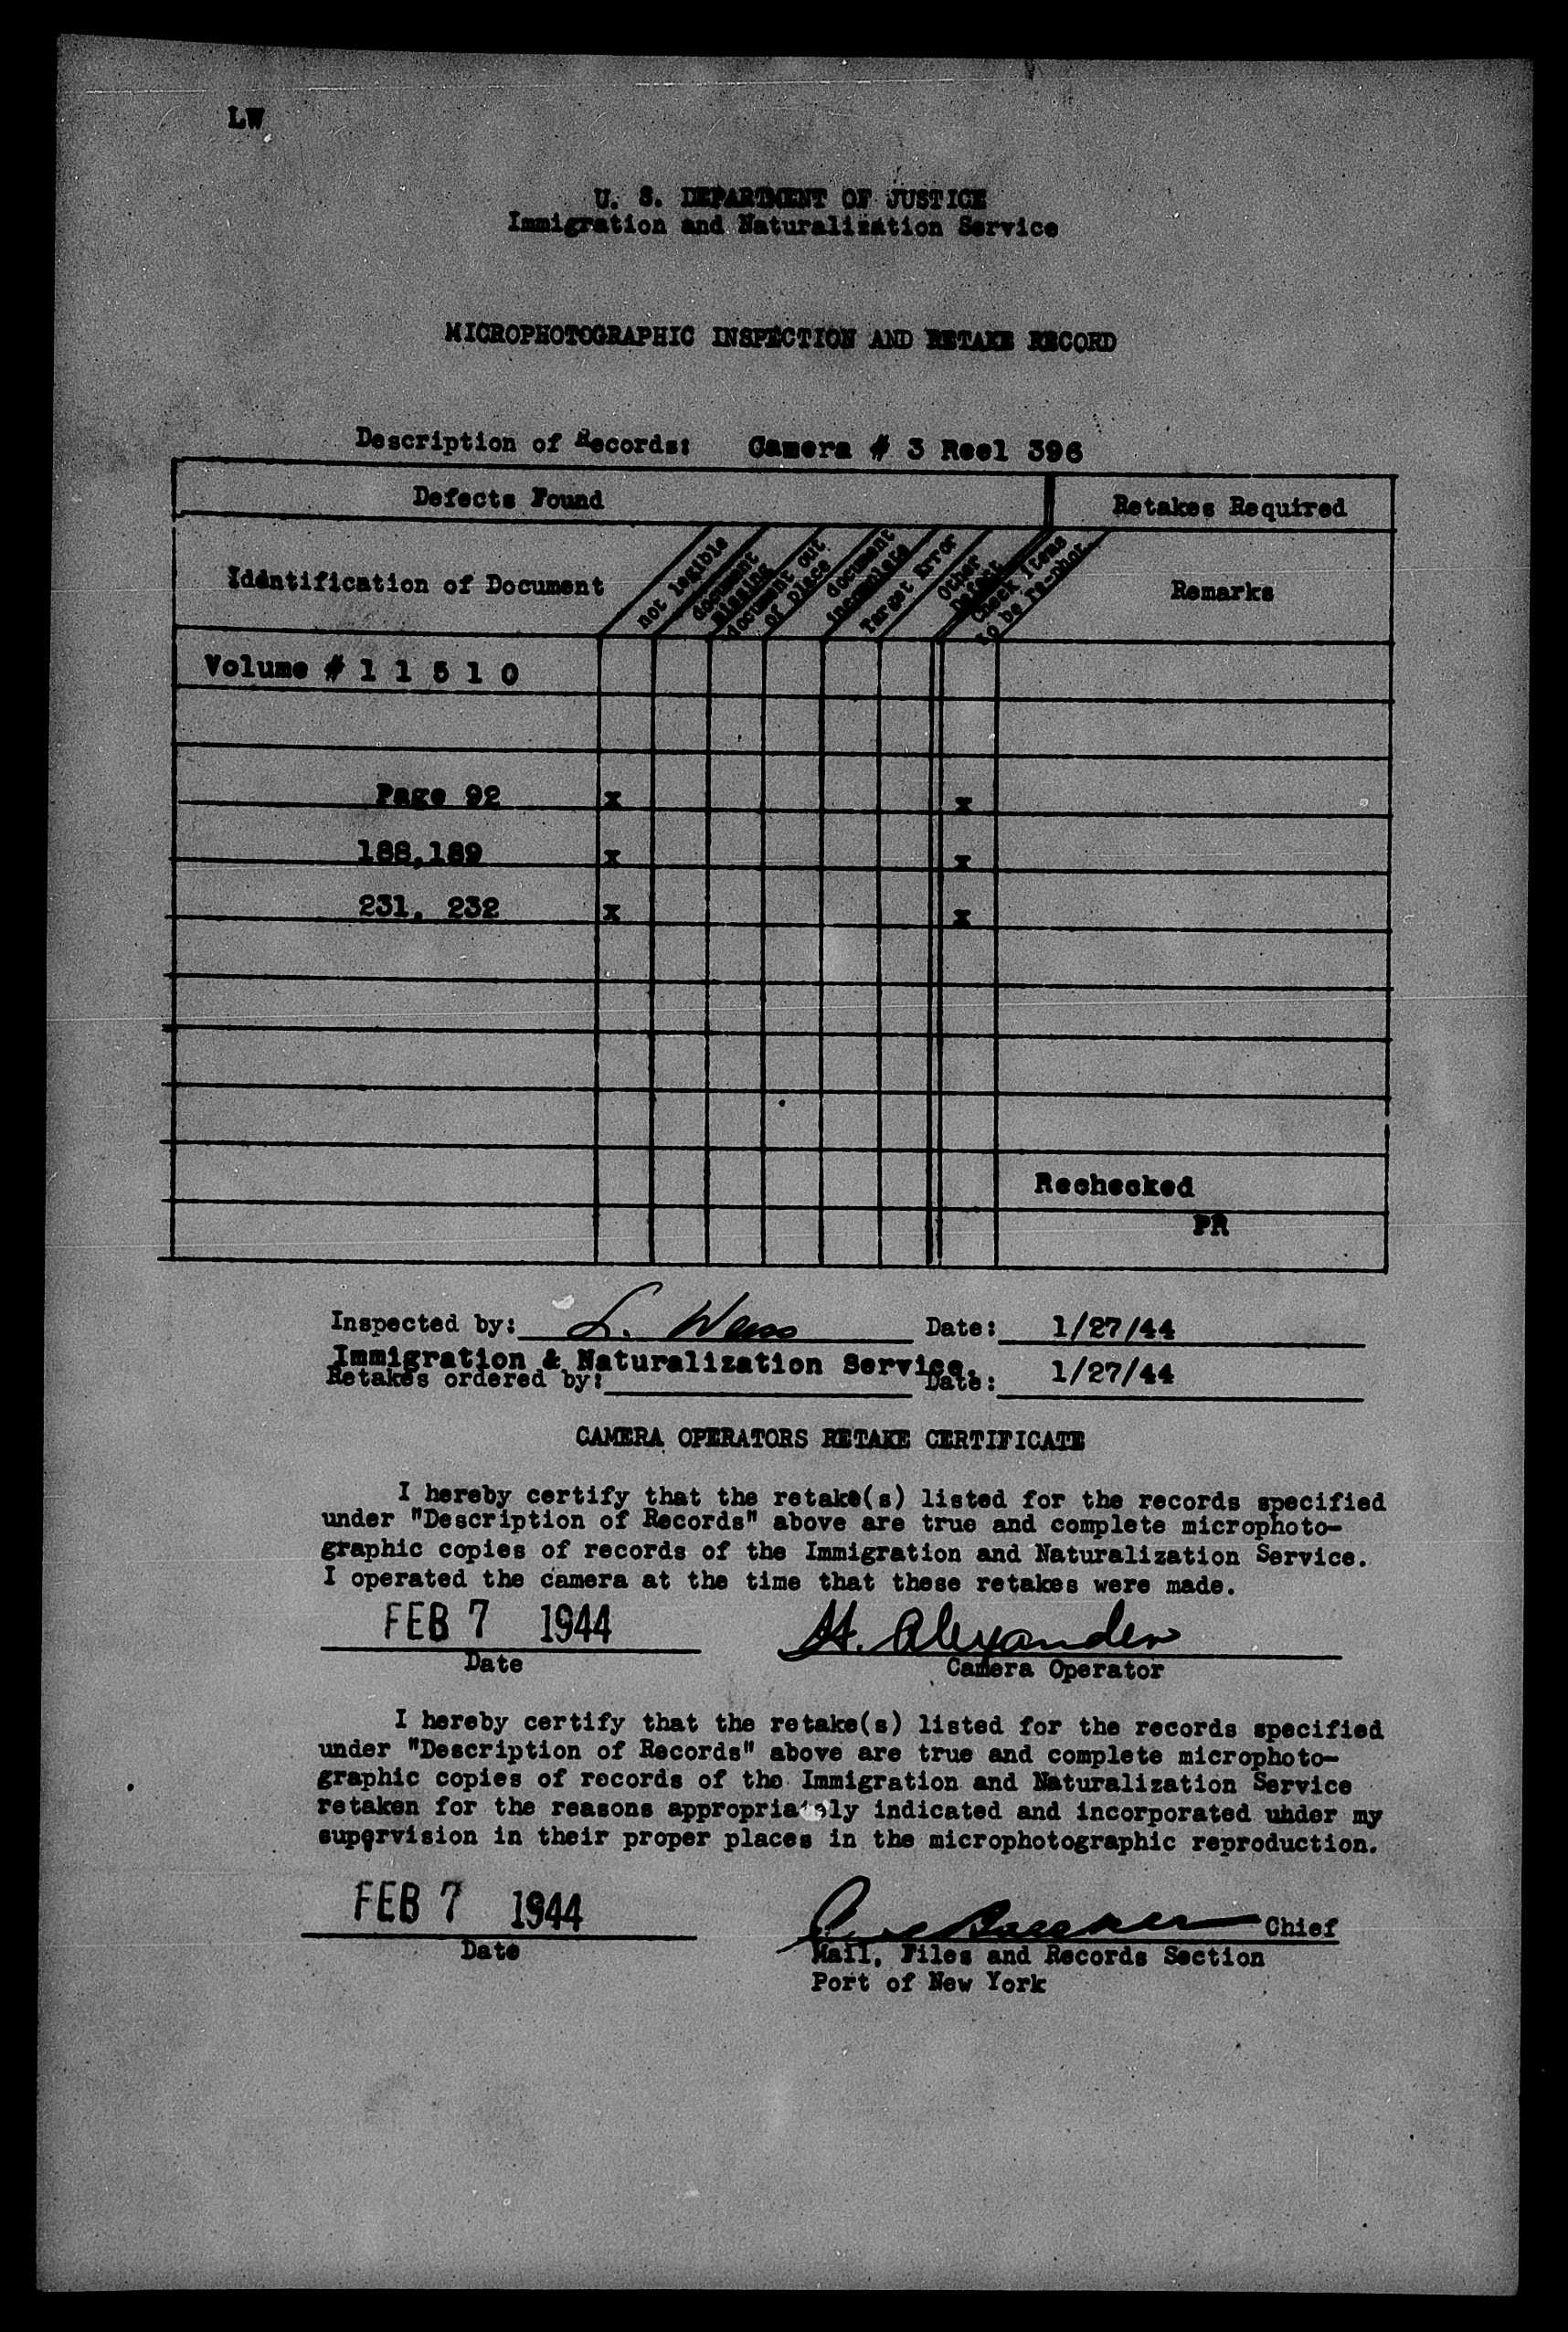 LW
U. S. DEPARTMENT OF JUSTICE
Immigration and Naturalization Service
MICROPHOTOGRAPHIC INSPECTION AND RETAKE RECORD
Description of Records: Camera # 3 Reel 396
Defects Found Retakes Required
Identification of Document not legible document missing document out of place document incomplete Target Error Other Defect Check Items to be re-phot. Remarks
Volume # 1 1 5 1 0
Page 92 x x
188,189 x x
231, 232 x x
Rechecked
PR
Inspected by: L. Weiss Date: 1/27/44
Immigration & Naturalization Service.
Retakes ordered by: Date: 1/27/44
CAMERA OPERATORS RETAKE CERTIFICATE
I hereby certify that the retake(s) listed for the records specified
under "Description of Records" above are true and complete microphoto-
graphic copies of records of the Immigration and Naturalization Service.
I operated the camera at the time that these retakes were made.
FEB 7 1944 H. Alexander
Date Camera Operator
I hereby certify that the retake(s) listed for the records specified
under "Description of Records" above are true and complete microphoto-
graphic copies of records of the Immigration and Naturalization Service
retaken for the reasons appropriately indicated and incorporated under my
supervision in their proper places in the microphotographic reproduction.
FEB 7 1944 Chief
Date Mail, Files and Records Section
Port of New York